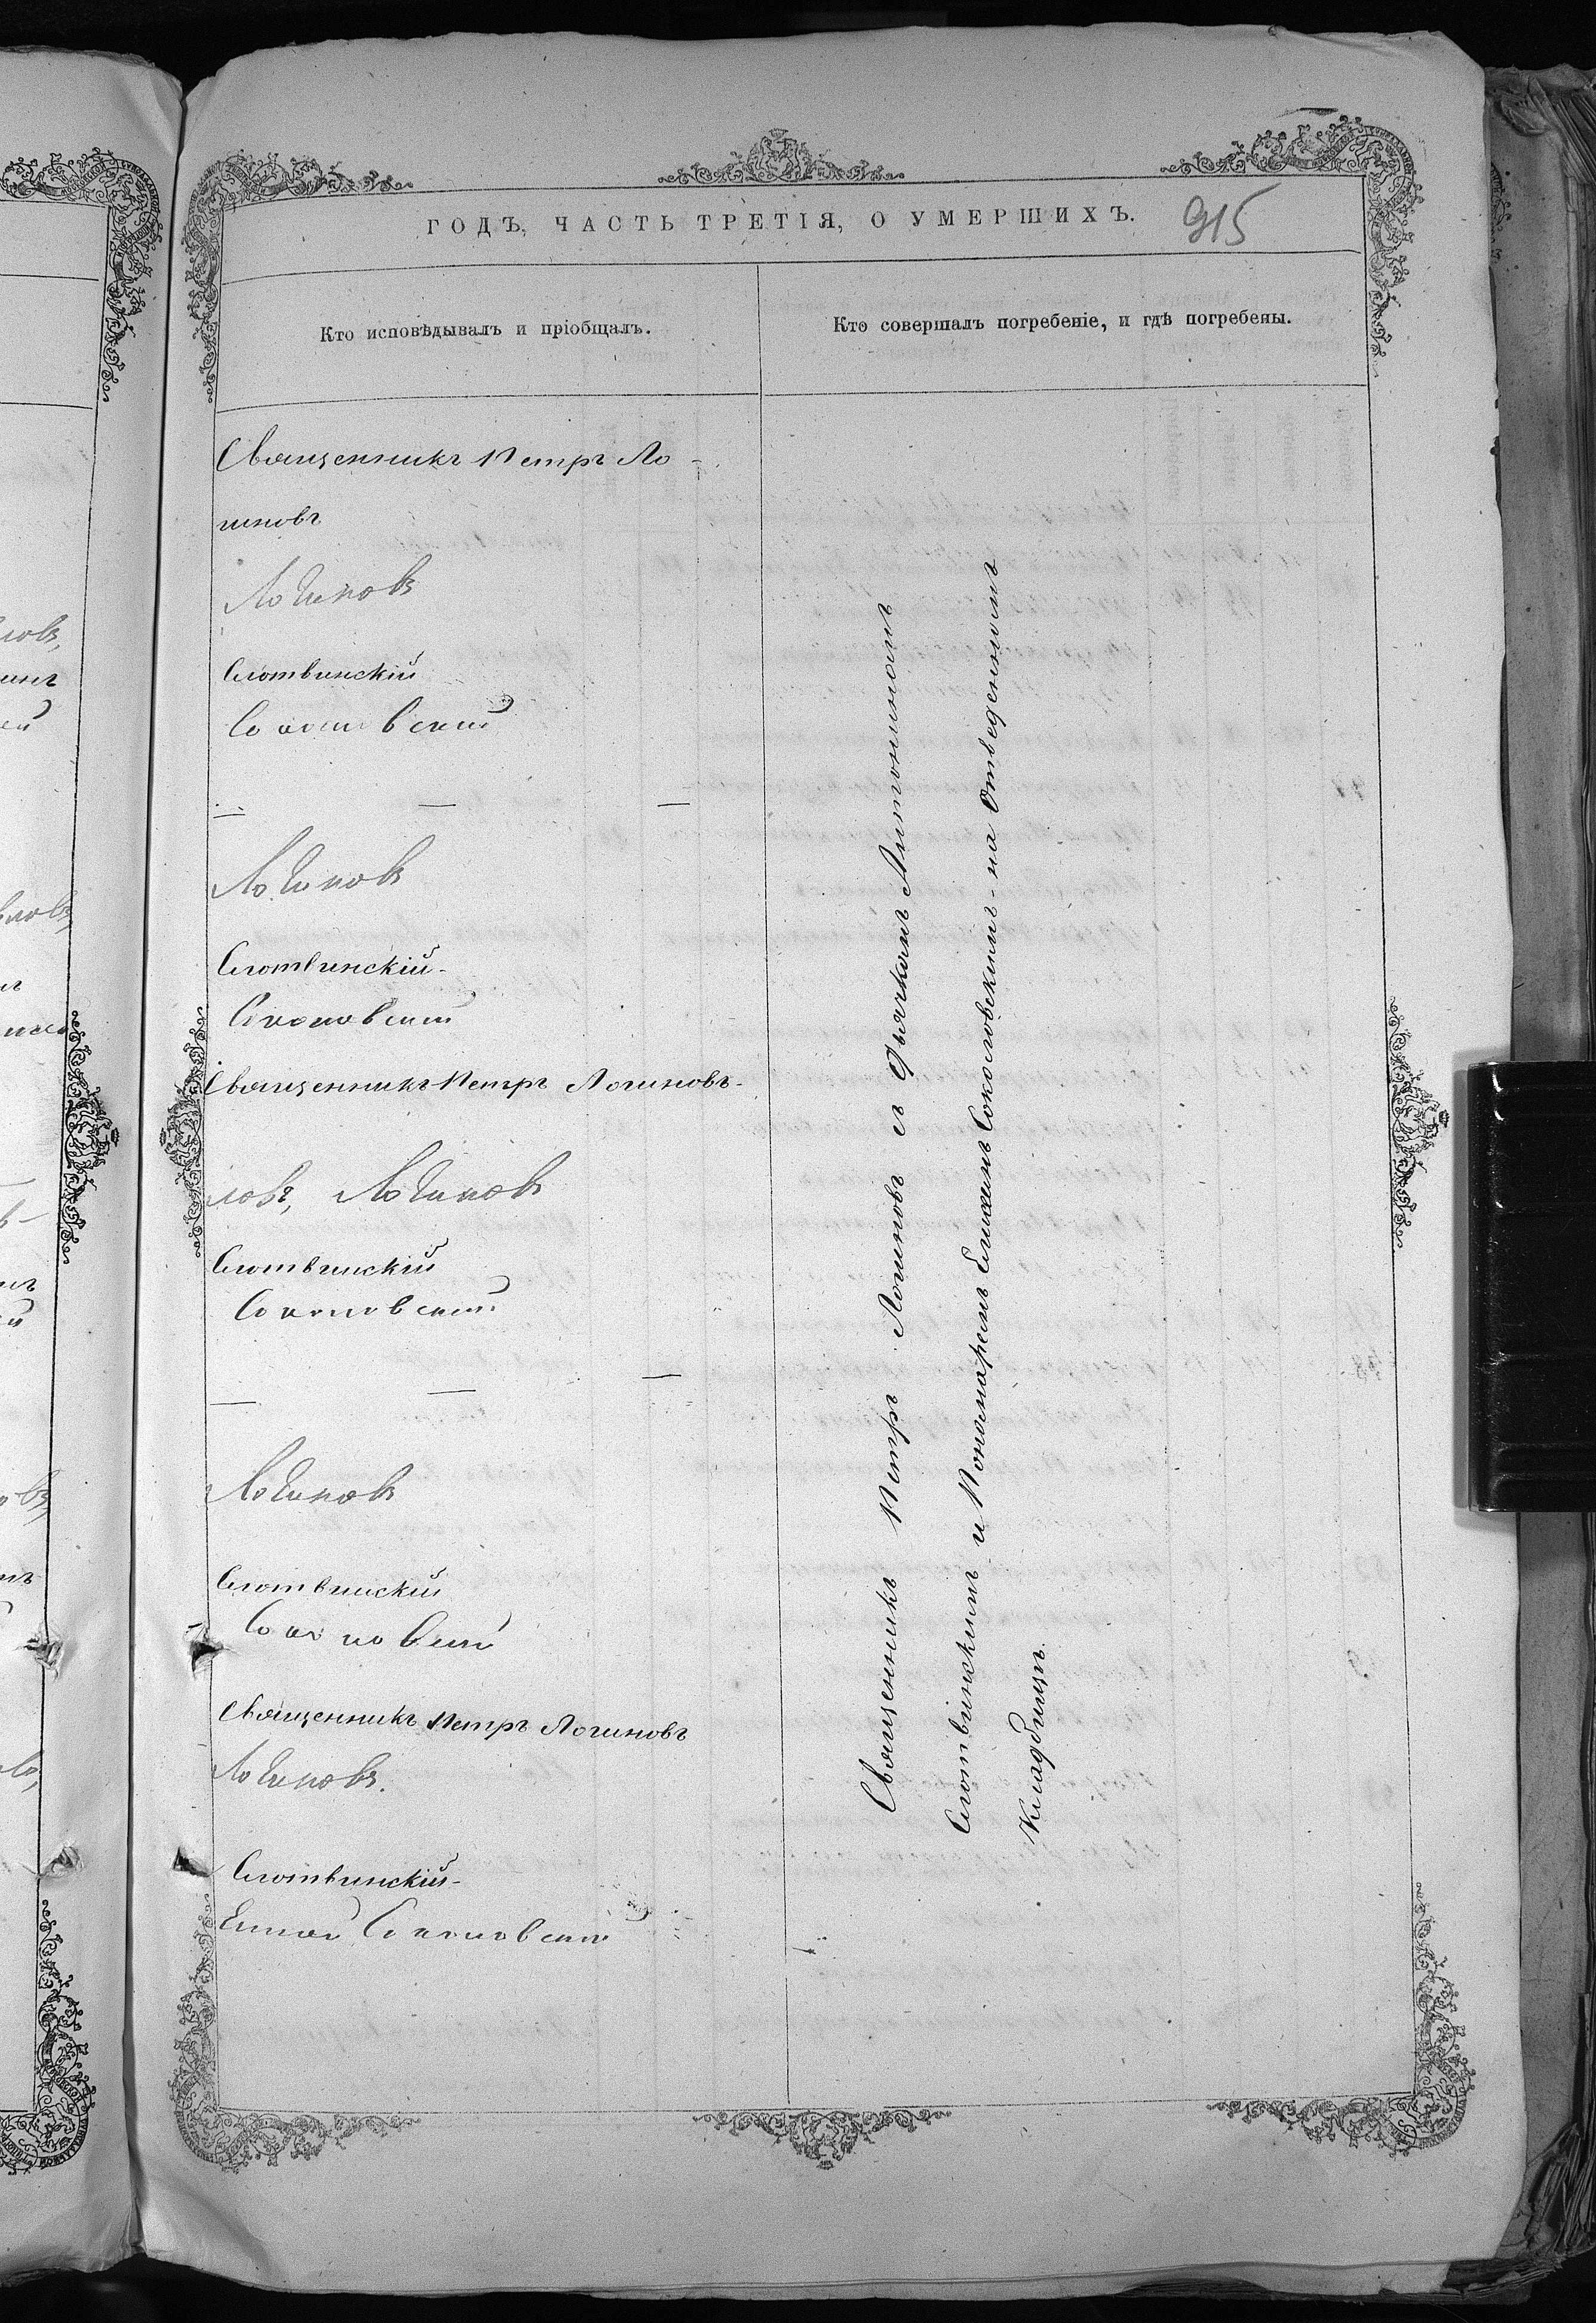 ГОДЪ, ЧАСТЬ ТРЕТІЯ, О УМЕРШИХЪ.
915
Кто исповѣдывалъ и пріобщалъ.
Кто совершалъ погребеніе, и гдѣ погребены.
Священникъ Петръ Ло-
гиновъ
Логиновъ
Слотвинскій
Соколовскій
Логиновъ
Слотвинскій
Соколовскій
Священникъ Петръ Логиновъ
ловъ, Логиновъ
Слотвинскій
Соколовскій
Логиновъ
Слотвинскій
Соколовскій
Священникъ Петръ Логиновъ
Логиновъ.
Слотвинскій
Соколовскій
Священникъ Петръ Логиновъ съ Дьячкомъ Антониномъ
Слотвинскимъ и Пономаремъ Соколовскимъ - на отведенномъ
кладбищѣ.